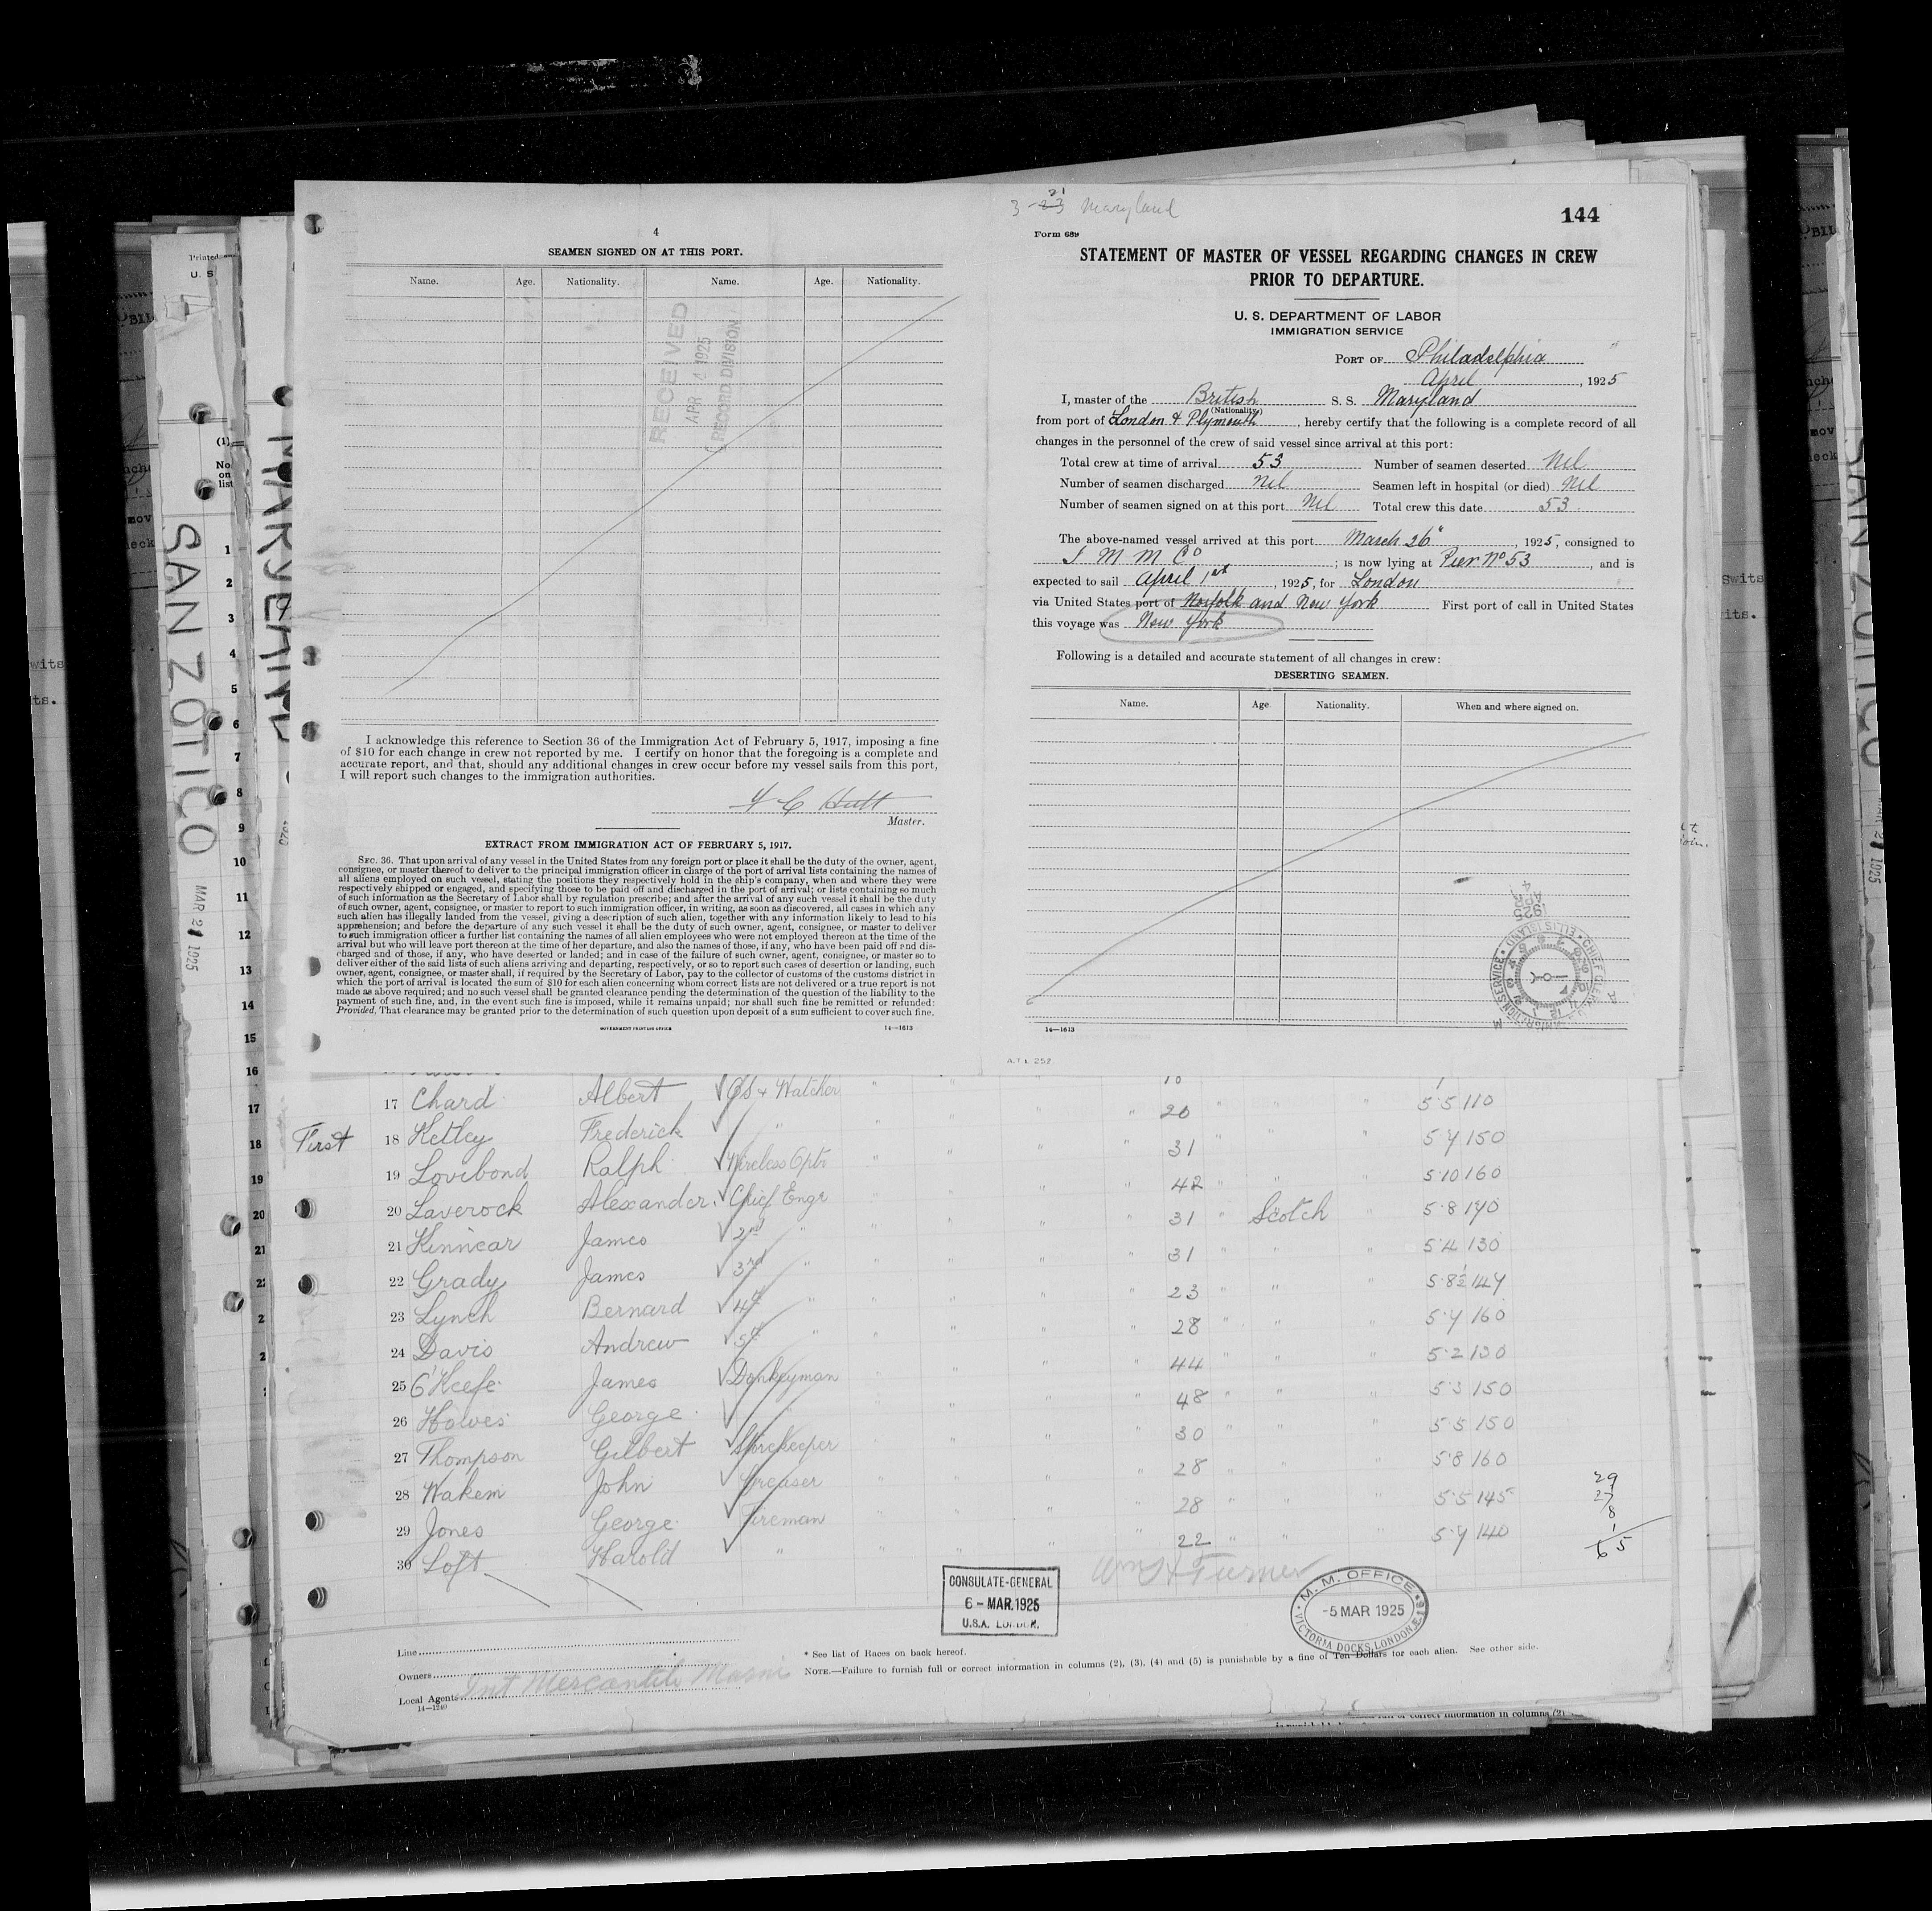 4
SEAMEN SIGNED ON AT THIS PORT.
Name. Age. Nationality. Name. Age. Nationality.
RECEIVED
APR 4 1925
RECORD DIVISION
I acknowledge this reference to Section 36 of the Immigration Act of February 5, 1917, imposing a fine
of $10 for each change in crew not reported by me. I certify on honor that the foregoing is a complete and
accurate report, and that, should any additional changes in crew occur before my vessel sails from this port,
I will report such changes to the immigration authorities.
Hutt
Master.
EXTRACT FROM IMMIGRATION ACT OF FEBRUARY 5, 1917.
SEC. 36. That upon arrival of any vessel in the United States from any foreign port or place it shall be the duty of the owner, agent,
consignee, or master thereof to deliver to the principal immigration officer in charge of the port of arrival lists containing the names of
all aliens employed on such vessel, stating the positions they respectively hold in the ship's company, when and where they were
respectively shipped or engaged, and specifying those to be paid off and discharged in the port of arrival; or lists containing so much
of such information as the Secretary of Labor shall by regulation prescribe; and after the arrival of any such vessel it shall be the duty
of such owner, agent, consignee, or master to report to such immigration officer, in writing, as soon as discovered, all cases in which any
such alien has illegally landed from the vessel, giving a description of such alien, together with any information likely to lead to his
apprehension; and before the departure of any such vessel it shall be the duty of such owner, agent, consignee, or master to deliver
to such immigration officer a further list containing the names of all alien employees who were not employed thereon at the time of the
arrival but who will leave port thereon at the time of her departure, and also the names of those, if any, who have been paid off and dis-
charged and of those, if any, who have deserted or landed; and in case of the failure of such owner, agent, consignee, or master so to
deliver either of the said lists of such aliens arriving and departing, respectively, or so to report such cases of desertion or landing, such
owner, agent, consignee, or master shall, if required by the Secretary of Labor, pay to the collector of customs of the customs district in
which the port of arrival is located the sum of $10 for each alien concerning whom correct lists are not delivered or a true report is not
made as above required; and no such vessel shall be granted clearance pending the determination of the question of the liability to the
payment of such fine, and, in the event such fine is imposed, while it remains unpaid; nor shall such fine be remitted or refunded:
Provided, That clearance may be granted prior to the determination of such question upon deposit of a sum sufficient to cover such fine.
GOVERNMENT PRINTING OFFICE 14—1613
3-23 21 Maryland
144
Form 689
STATEMENT OF MASTER OF VESSEL REGARDING CHANGES IN CREW
PRIOR TO DEPARTURE.
U. S. DEPARTMENT OF LABOR
IMMIGRATION SERVICE
PORT OF Philadelphia
April , 1925
I, master of the British S. S. Maryland
(Nationality)
from port of London & Plymouth , hereby certify that the following is a complete record of all
changes in the personnel of the crew of said vessel since arrival at this port:
Total crew at time of arrival 53 Number of seamen deserted Nil
Number of seamen discharged Nil Seamen left in hospital (or died) Nil
Number of seamen signed on at this port Nil Total crew this date 53
The above-named vessel arrived at this port March 26" , 1925, consigned to
I M M Co ; is now lying at Pier No 53 , and is
expected to sail April 1st , 1925, for London
via United States port of Norfolk and New York First port of call in United States
this voyage was New York
Following is a detailed and accurate statement of all changes in crew:
DESERTING SEAMEN.
Name. Age. Nationality. When and where signed on.
1925
APR
4
CHIEF CLERK
IMMIGRATION SERVICE
ELLIS ISLAND
14—1613
A.T.L. 252
17 Chard Albert ✓ OS & Watcher " " " " 20 " " " 5·5 110
First 18 Ketley Frederick ✓ " " " " " 31 " " " 5·7 150
19 Lovibond Ralph ✓ Wireless Optr " " " " 42 " " " 5·10 160
20 Laverock Alexander ✓ Chief Engr " " " " 31 " Scotch " 5·8 170
21 Kinnear James ✓ 2nd " " " " " 31 " " " 5·4 130
22 Grady James ✓ 3rd " " " " " 23 " " " 5·8½ 147
23 Lynch Bernard ✓ 4th " " " " " 28 " " " 5·7 160
24 Davis Andrew ✓ 5th " " " " " 44 " " " 5·2 130
25 O'Keefe James ✓ Donkeyman " " " " 48 " " " 5·3 150
26 Howes George ✓ " " " " " 30 " " " 5·5 150
27 Thompson Gilbert ✓ Storekeeper " " " " 28 " " " 5·8 160
28 Wakem John ✓ Greaser " " " " 28 " " " 5·5 145
29 Jones George ✓ Fireman " " " " 22 " " " 5·7 140
30 Loft Harold ✓ "
29
27
8
1
65
Wm H Turner
CONSULATE-GENERAL
6 - MAR. 1925
U.S.A. LONDON.
M. M. OFFICE
-5 MAR 1925
VICTORIA DOCKS, LONDON, E.16
Line
Owners
Local Agents Int Mercantile Marine
14—1240
* See list of Races on back hereof.
NOTE.—Failure to furnish full or correct information in columns (2), (3), (4) and (5) is punishable by a fine of Ten Dollars for each alien. See other side.
Printed
U. S
(1)
No.
on
list
SAN ZOTICO
MAR 21 1925
1
2
3
4
5
6
7
8
9
10
11
12
13
14
15
16
17
18
19
20
21